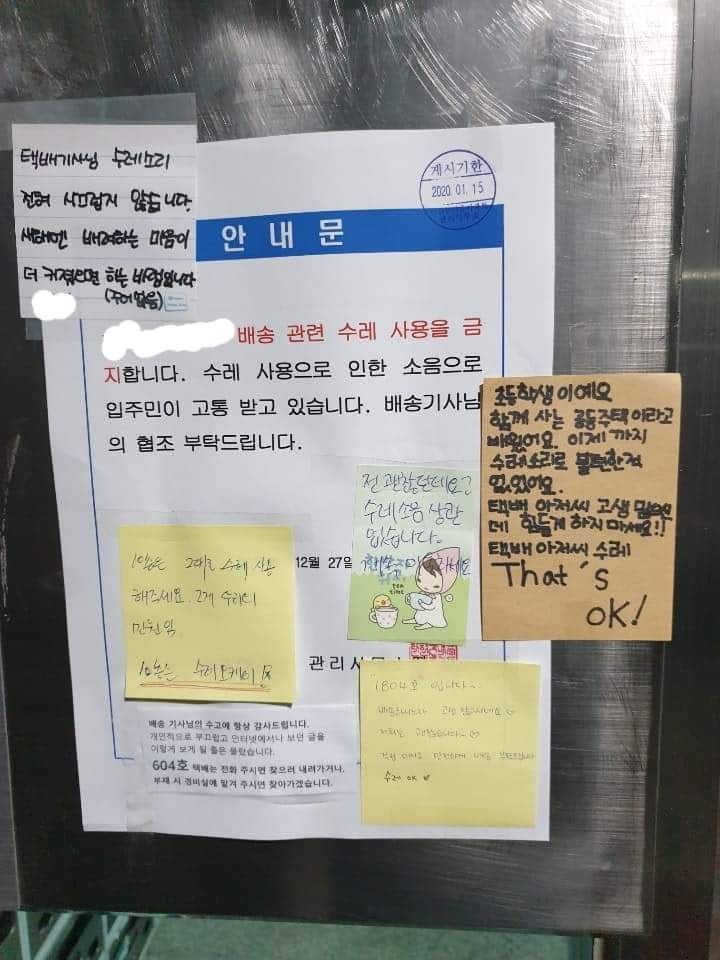 택배기사님 수레소리
전혀 시끄럽지 않습니다.
배려하는 마음이
더 커졌으면 하는 바램입니다
(주어없음)
게시기한
2020.01.15
안내문
배송 관련 수레 사용을 금
지합니다. 수레 사용으로 인한 소음으로
입주민이 고통 받고 있습니다. 배송기사님
의 협조 부탁드립니다.
12월 27일
관리사무소
초등학생이예요
함께 사는 공동주택이라고
배웠어요. 이제까지
수레소리로 불편한적
없었어요.
택배 아저씨 고생
데 힘들게 하지마세요!!
택배 아저씨 수레
That's
OK!
전 괜찮던데요?
수레소음 상관
없습니다.
tea
time
수레 사용
해주세요.
수레오케이
"1804호" 입니다~
수레 OK
배송 기사님의 수고에 항상 감사드립니다.
개인적으로 부끄럽고 인터넷에서나 보던 글을
이렇게 보게 될 줄은 몰랐습니다.
604호 택배는 전화 주시면 찾으러 내려가거나,
부재 시 경비실에 맡겨 주시면 찾아가겠습니다.